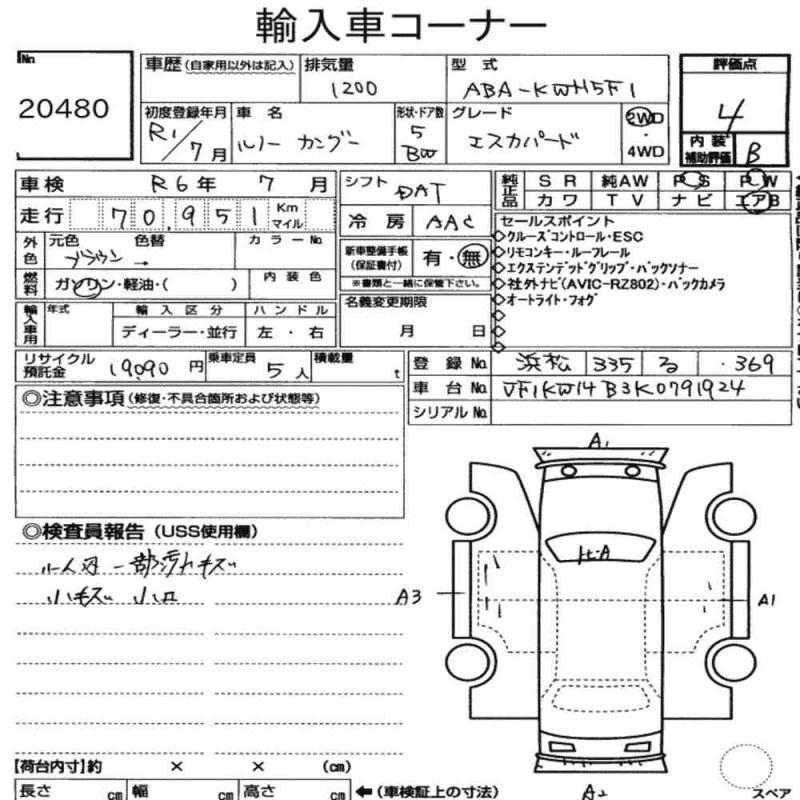 輸入車コーナー
No
20480
車歴 (自家用以外は記入) 排気量 型式
1200 ABA-KWH5F1
評価点
4
初度登録年月 車名 形状・ドア数 グレード
R1/7月 ルノー カングー 5 BW エスカパード 2WD・4WD
内装補助評価 B
車検 R6年 7月
走行 70,951 Km マイル
シフト DAT
冷房 AAC
純正品 SR 純AW PS PW
カワ TV ナビ エアB
外色 元色 色替 カラーNo.
ブラウン →
新車整備手帳(保証書付) 有・無
※書類と一緒に保管下さい。
燃料 ガソリン・軽油・( ) 内装色
名義変更期限
月 日
セールスポイント
◇クルーズコントロール・ESC
◇リモコンキー・ルーフレール
◇エクステンデットグリップ・バックソナー
◇社外ナビ(AVIC-RZ802)・バックカメラ
◇オートライト・フォグ
◇
◇
◇
輸入車用 年式 輸入区分 ハンドル
ディーラー・並行 左・右
リサイクル預託金 19,090円 乗車定員 5人 積載量 t
登録No. 浜松 335 る ・369
車台No. VF1KW14B3K0791924
シリアルNo.
◎注意事項 (修復・不具合箇所および状態等)
◎検査員報告 (USS使用欄)
一部汚れキズ
小キズ
A1
A3
A1
A2
【荷台内寸】約 × × (cm)
長さ cm 幅 cm 高さ cm ←(車検証上の寸法)
スペア